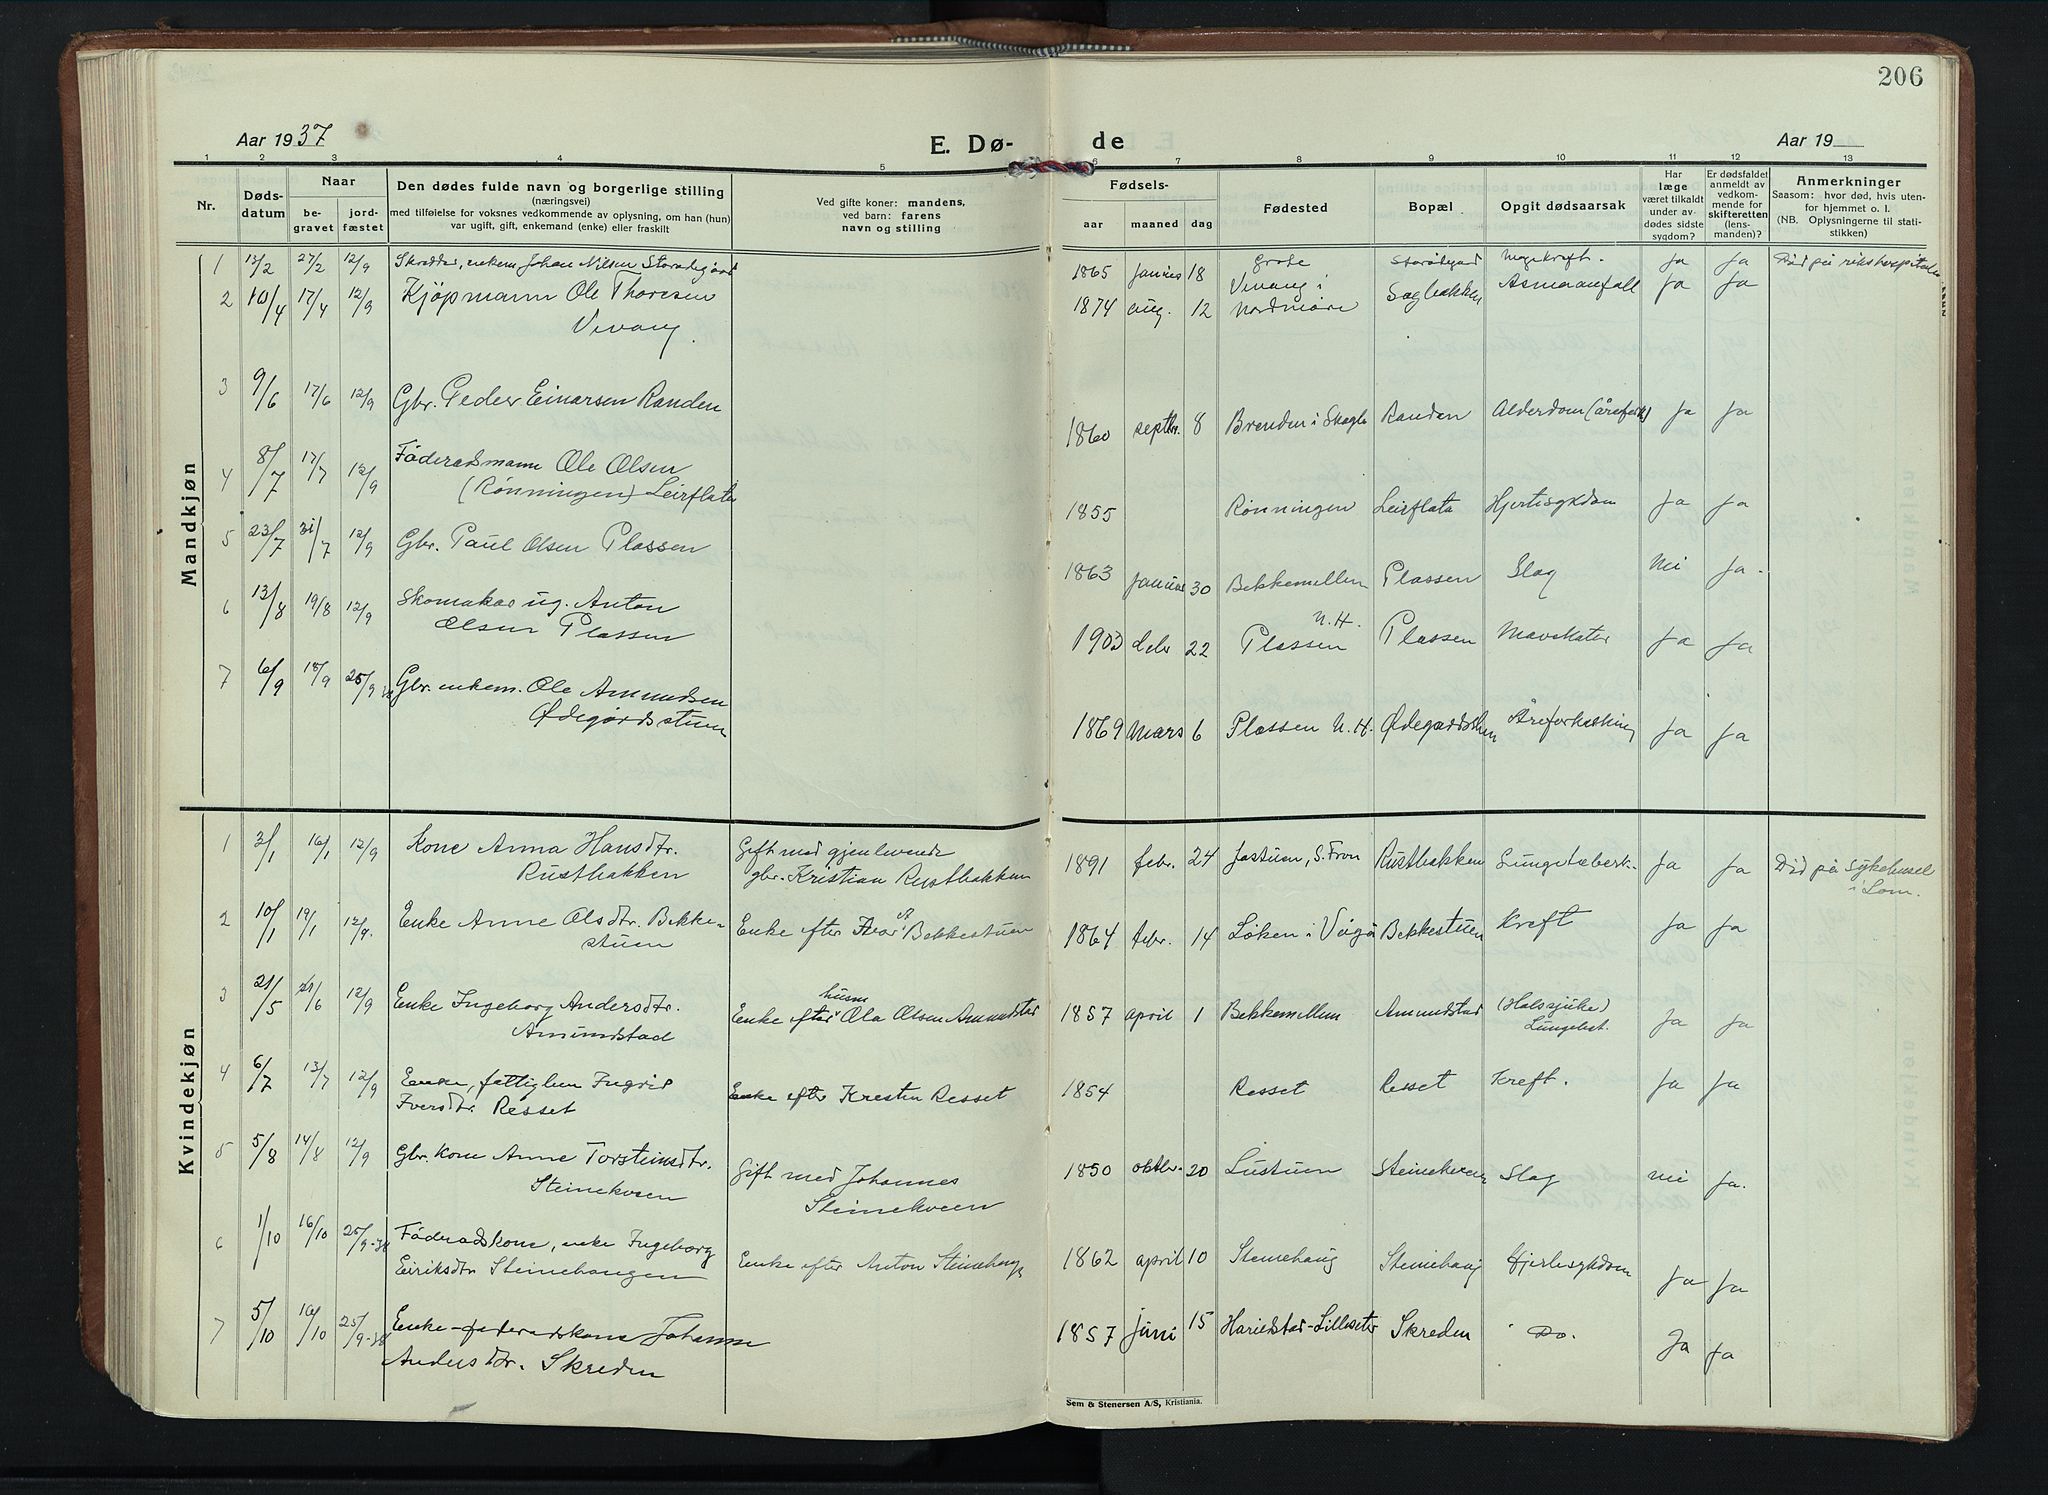 206
Aar 1937
E. Dø-
de
Aar 19
1 2 3 4 5 6 7 8 9 10 11 12 13
Nr.
Døds-
datum
Naar
be-
gravet
jord-
fæstet
Den dødes fulde navn og borgerlige stilling
(næringsvei)
med tilføielse for voksnes vedkommende av oplysning, om han (hun)
var ugift, gift, enkemand (enke) eller fraskilt
Ved gifte koner: mandens,
ved barn: farens
navn og stilling
Fødsels-
aar maaned dag
Fødested
Bopæl
Opgit dødsaarsak
Har
læge
været tilkaldt
under av-
dødes sidste
sygdom?
Er dødsfaldet
anmeldt av
vedkom-
mende for
skifteretten
(lens-
manden)?
Anmerkninger
Saasom: hvor død, hvis uten-
for hjemmet o. l.
(NB. Oplysningerne til stati-
stikken)
Mandkjøn
1 13/2 27/2 12/9 Johan Nilsen 1865 januar 18 Ja Ja
2 10/4 17/4 12/9 Kjøpmann Ole Thoresen 1874 aug. 12 Vevang i Sagbakken Asmaanfall Ja Ja
Vevang Nordmøre
3 9/6 17/6 12/9 Gbr. Peder Einarsen Randen 1860 septbr. 8 Brenden i Randen Alderdom Ja Ja
4 8/7 17/7 12/9 Føderaadsmann Ole Olsen
(Rønningen) Leirflata 1855 Rønningen Leirflata Hjertesykdom Ja Ja
5 23/7 31/7 12/9 Gbr. Paul Olsen Plassen 1863 januar 30 Bekkemellen Plassen Slag Nei Ja.
6 13/8 19/8 12/9 Skomaker ug. Anton
Olsen Plassen 1903 22 Plassen N.H. Plassen Ja Ja
7 6/9 18/9 25/9 Gbr. enkem. Ole Amundsen
Ødegårdsstuen 1869 Mars 6 Plassen N.H. Ødegårdsstuen Åreforkalkning Ja Ja
Kvindekjøn
1 3/1 16/1 12/9 Kone Anna Hansdtr. Gift med gjenlevende
Rustbakken gbr. Kristian Rustbakken 1891 febr. 24 S. Fron Rustbakken Lungetuberk. Ja Ja Død på sykehuset
i Lom.
2 10/1 19/1 12/9. Enke Anne Olsdtr. Bekke-
stuen Enke efter Bekkestuen 1864 febr. 14 Løken i Vågå Bekkestuen Kreft Ja Ja
3 21/5 12/9 Enke Ingeborg Andersdtr.
Amundstad Enke efter husm. Ola Olsen Amundstad 1857 april 1 Bekkemellen Amundstad (Halssjuke)
Lungebet. Ja Ja
4 6/7 13/7 12/9 Enke, fattiglem Ingrid
Iversdtr. Resset Enke efter Kresten Resset 1854 Resset Resset Kreft. Ja Ja
5 5/8 14/8 12/9 Gbr. kone Anne Torsteinsdtr.
Steinekveen Gift med Johannes
Steinekveen 1850 oktbr. 20 Lustuen Steinekveen Slag Nei Ja.
6 1/10 16/10 25/9-38 Føderadskone, enke Ingeborg
Eiriksdtr. Steinehaugen Enke efter Anton Steinehaug 1862 april 10 Steinehaug Steinehaug Hjertesykdom Ja Ja
7 5/10 16/10 25/9-38 Enke føderadskone Johanne
Andersdtr. Skreden 1857 juni 15 Harildstad-Lilleseter Skreden Do. Ja Ja
Sem & Stenersen A/S, Kristiania.